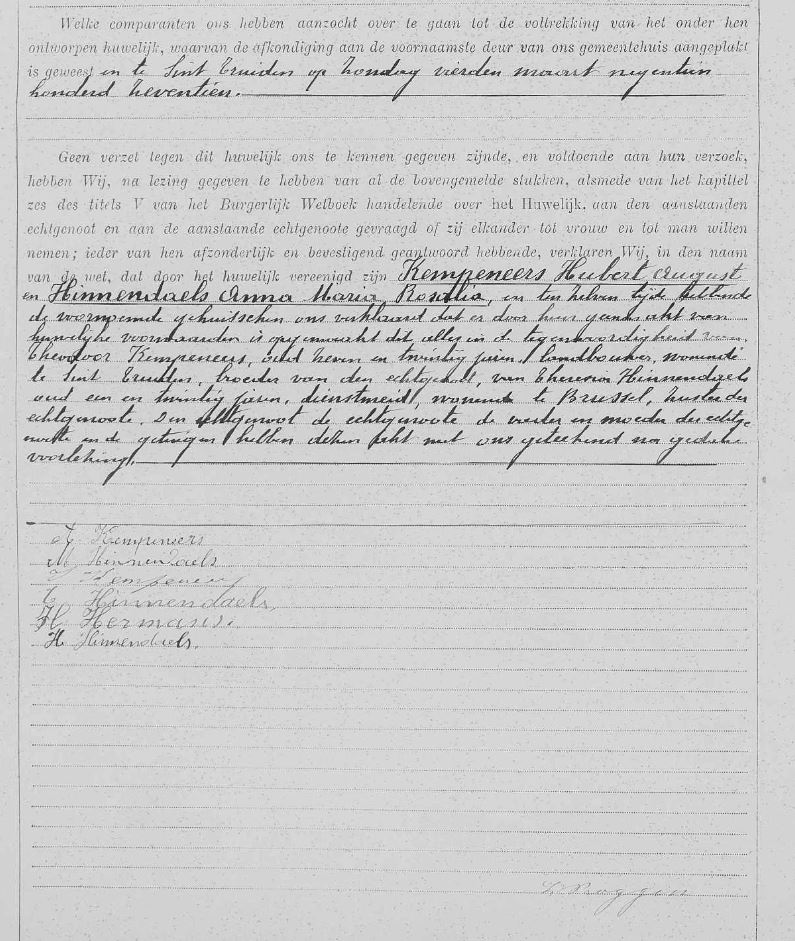 Welke comparanten ons hebben aanzocht over te gaan tot de voltrekking van het onder hen
ontworpen huwelijk, waarvan de afkondiging aan de voornaamste deur van ons gemeentehuis aangeplakt
is geweest en te Sint Truiden op Zondag vierden maart negentien
honderd zeventien.
Geen verzet tegen dit huwelijk ons te kennen gegeven zijnde, en voldoende aan hun verzoek,
hebben Wij, na lezing gegeven te hebben van al de bovengemelde stukken, alsmede van het kapittel
zes des titels V van het Burgerlijk Wetboek handelende over het Huwelijk, aan den aanstaanden
echtgenoot en aan de aanstaande echtgenoote gevraagd of zij elkander tot vrouw en tot man willen
nemen; ieder van hen afzonderlijk en bevestigend geantwoord hebbende, verklaren Wij, in den naam
van de wet, dat door het huwelijk vereenigd zijn Kempeneers Hubert August
en Hinnendaels Anna Maria Rosalia, en ten zelven tijde hebbende
de voornoemde gehuwden ons verklaard dat er door hen geene akt van
huwelijksche voorwaarden is opgemaakt dit alles in de tegenwoordigheid van
Theodoor Kempeneers, oud zeven en twintig jaren, landbouwer, wonende
te Sint Truiden, broeder van den echtgenoot, van Theresia Hinnendaels
oud een en twintig jaren, dienstmeid, wonende te Brussel, zuster der
echtgenoote. Den echtgenoot de echtgenoote de vader en moeder der echtge-
noote en de getuigen hebben dezen akt met ons geteekend na gedane
voorlezing.
A. Kempeneers
M. Hinnendaels
T. Kempeneers
T. Hinnendaels
H. Hermans.
H. Hinnendaels.